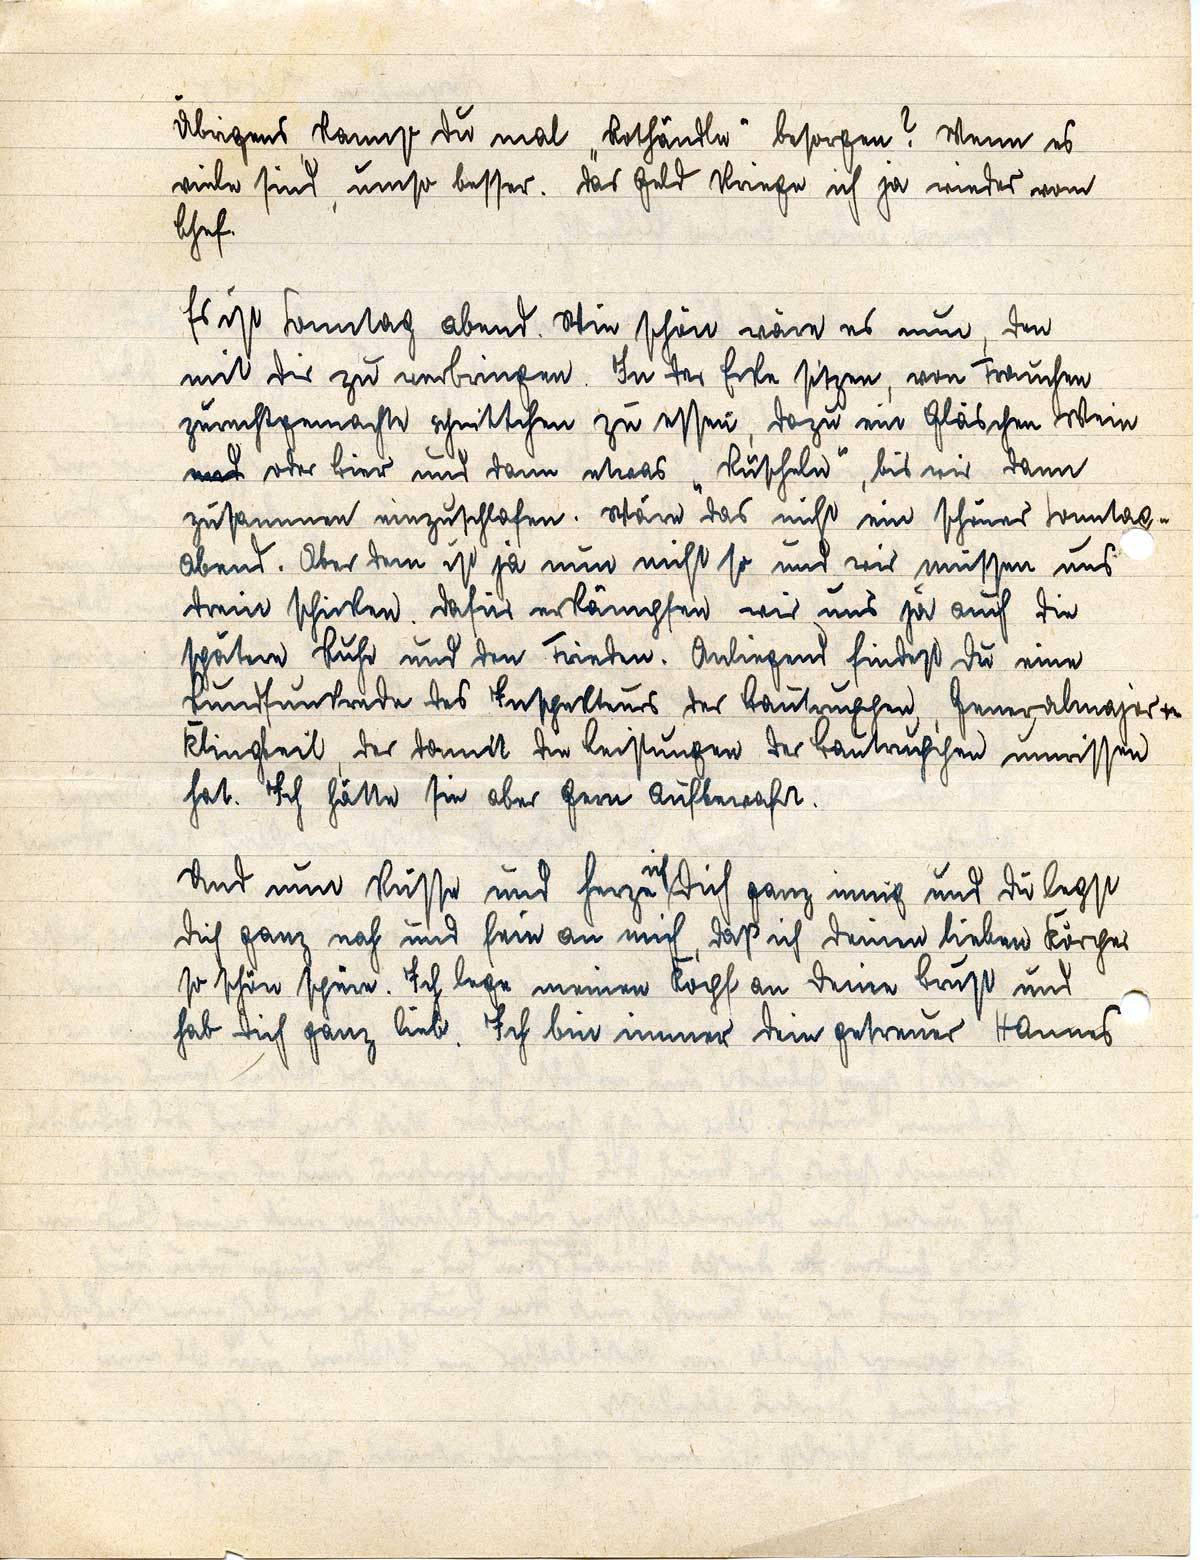 Übrigens, kannst du mal „Rothändle" besorgen? Wenn es
viele sind, umso besser. Das Geld kriege ich ja wieder vom
Chef.
Es ist Sonntag abend. Wie schön wäre es nun, den
mit dir zu verbringen. In der Ecke sitzen, von Frauchen
zurechtgemachte Schnittchen zu essen, dazu ein Gläschen Wein
und oder Bier und dann etwas „kuscheln", bis wir dann
zusammen einzuschlafen. Wäre das nicht ein schöner Sonntag-
abend. Aber dem ist ja nun nicht so und wir müssen uns
drein schicken. Dafür erkämpfen wir uns ja auch die
spätere Ruhe und den Frieden. Anliegend findest du eine
Rundfunkrede des Inspekteurs der Bautruppen, Generalmajor
Klingbeil, der damit die Leistungen der Bautruppen umrissen
hat. Ich hätte sie aber gern aufbewahrt.
Und nun küsse und herze ich Dich ganz innig und du legst
dich ganz nah und fein an mich, daß ich deinen lieben Körper
so schön spüre. Ich lege meinen Kopf an deine Brust und
hab dich ganz lieb. Ich bin immer dein getreuer Hannes